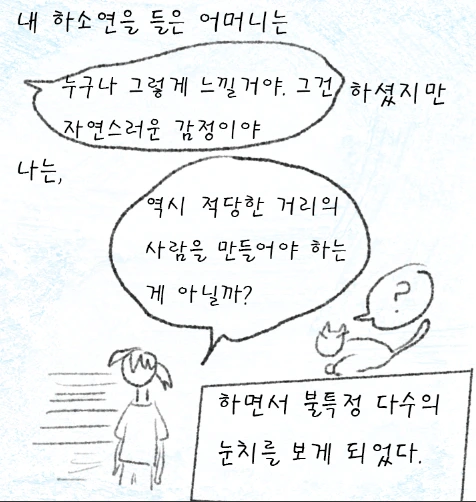 내 하소연을 들은 어머니는
누구나 그렇게 느낄거야. 그건
자연스러운 감정이야
하셨지만
나는,
역시 적당한 거리의
사람을 만들어야 하는
게 아닐까?
?
하면서 불특정 다수의
눈치를 보게 되었다.